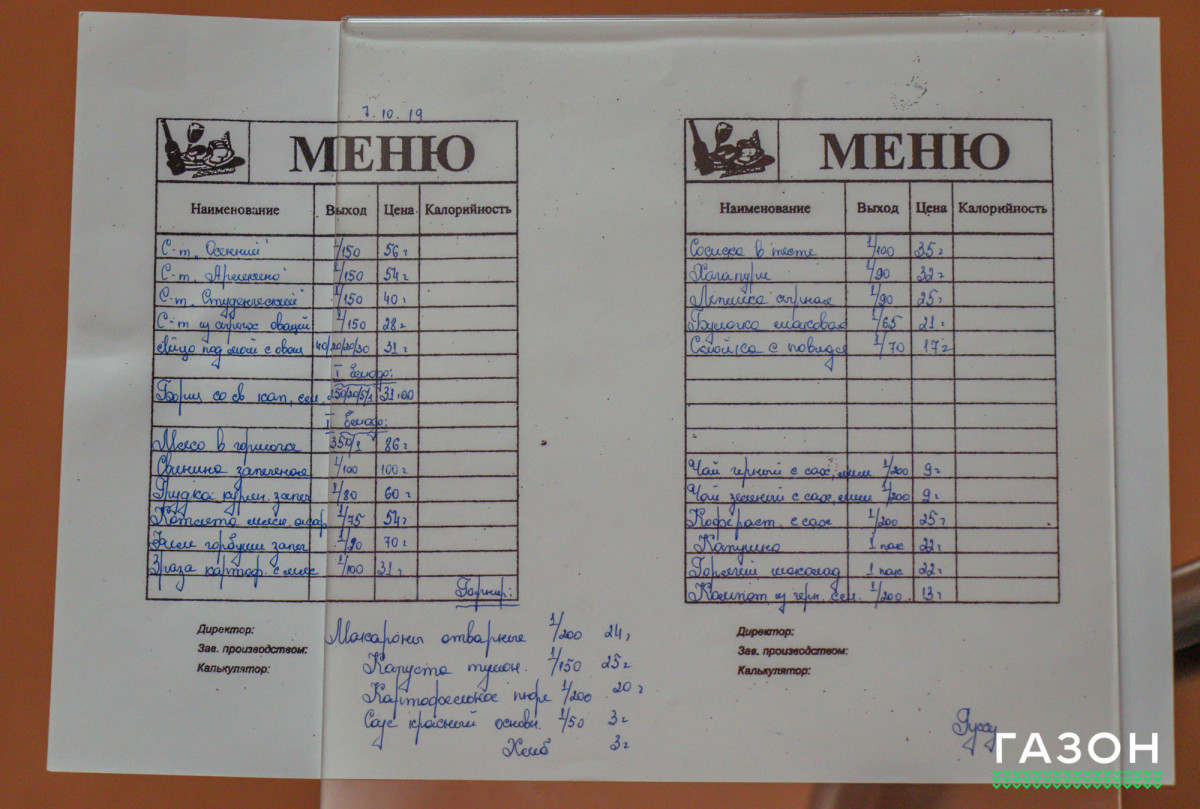 7.10.19
МЕНЮ
Наименование Выход Цена Калорийность
С-т „Осенний" 1/150 56 г
С-т „Арлекино" 1/150 54 г
С-т „Студенческий" 1/150 40 г
С-т из свежих овощей 1/150 28 г
Яйцо под май с овощ 40/20/20/30 31 г
I блюдо:
Борщ со св кап, сме. 250/20/5/1 31.00
II блюдо:
Мясо в горшочке 350/1 86 г
Свинина запеченая 1/100 100 г
Грудка курин. запеч 1/80 60 г
Котлета мясн. 1/75 54 г
Филе горбуши запеч 1/90 70 г
Зраза картоф. с мяс 1/100 31 г
Гарнир:
Директор:
Зав. производством:
Калькулятор:
Макароны отварные 1/200 24,
Капуста тушон. 1/150 25 г
Картофельное пюре 1/200 20 г
Соус красный основн. 1/50 3 г
Хлеб 3 г
МЕНЮ
Наименование Выход Цена Калорийность
Сосиска в тесте 1/100 35 г
Хачапури 1/90 32 г
Лепешка сырная 1/90 25 г
Булочка маковая 1/65 21 г
Слойка с повидл 1/70 17 г
Чай черный с сах, лим 1/200 9 г
Чай зеленый с сах, лим 1/200 9 г
Кофе раст. с сах 1/200 25 г
Капучино 1 пак 22 г
Горячий шоколад 1 пак 22 г
Компот из черн. см. 1/200 13 г
Директор:
Зав. производством:
Калькулятор:
ГАЗОН